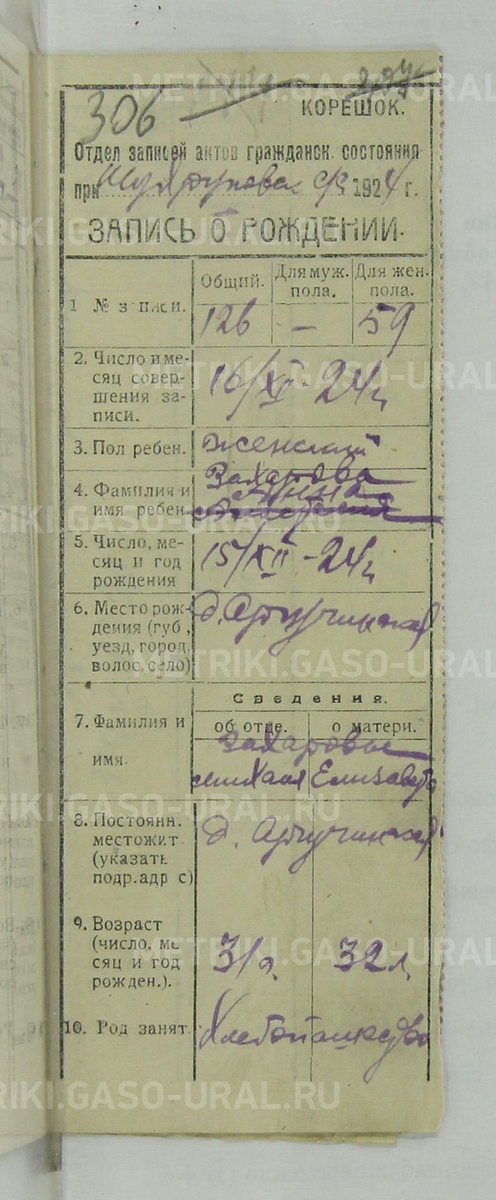 306
КОРЕШОК.
Отдел записей актов гражданск. состояния
при с/с 1924 г.
ЗАПИСЬ О РОЖДЕНИИ.
Общий. Для муж. пола. Для жен. пола.
1 № записи. 126 — 59
2. Число и месяц совершения записи. 16/XII-24 г.
3. Пол ребен. женский
4. Фамилия и имя ребен. Захарова Анна
5. Число, месяц и год рождения 15/XII-24 г.
6. Место рождения (губ., уезд, город, волос. село) д.
Сведения.
об отце. о матери.
7. Фамилия и имя. Захаровы
Михаил Елизавета
8. Постоянн. местожит (указать подр. адр с) д.
9. Возраст (число, месяц и год рожден.). 31 г. 32 л.
10. Род занят. Хлебопашество
METRIKI.GASO-URAL.RU